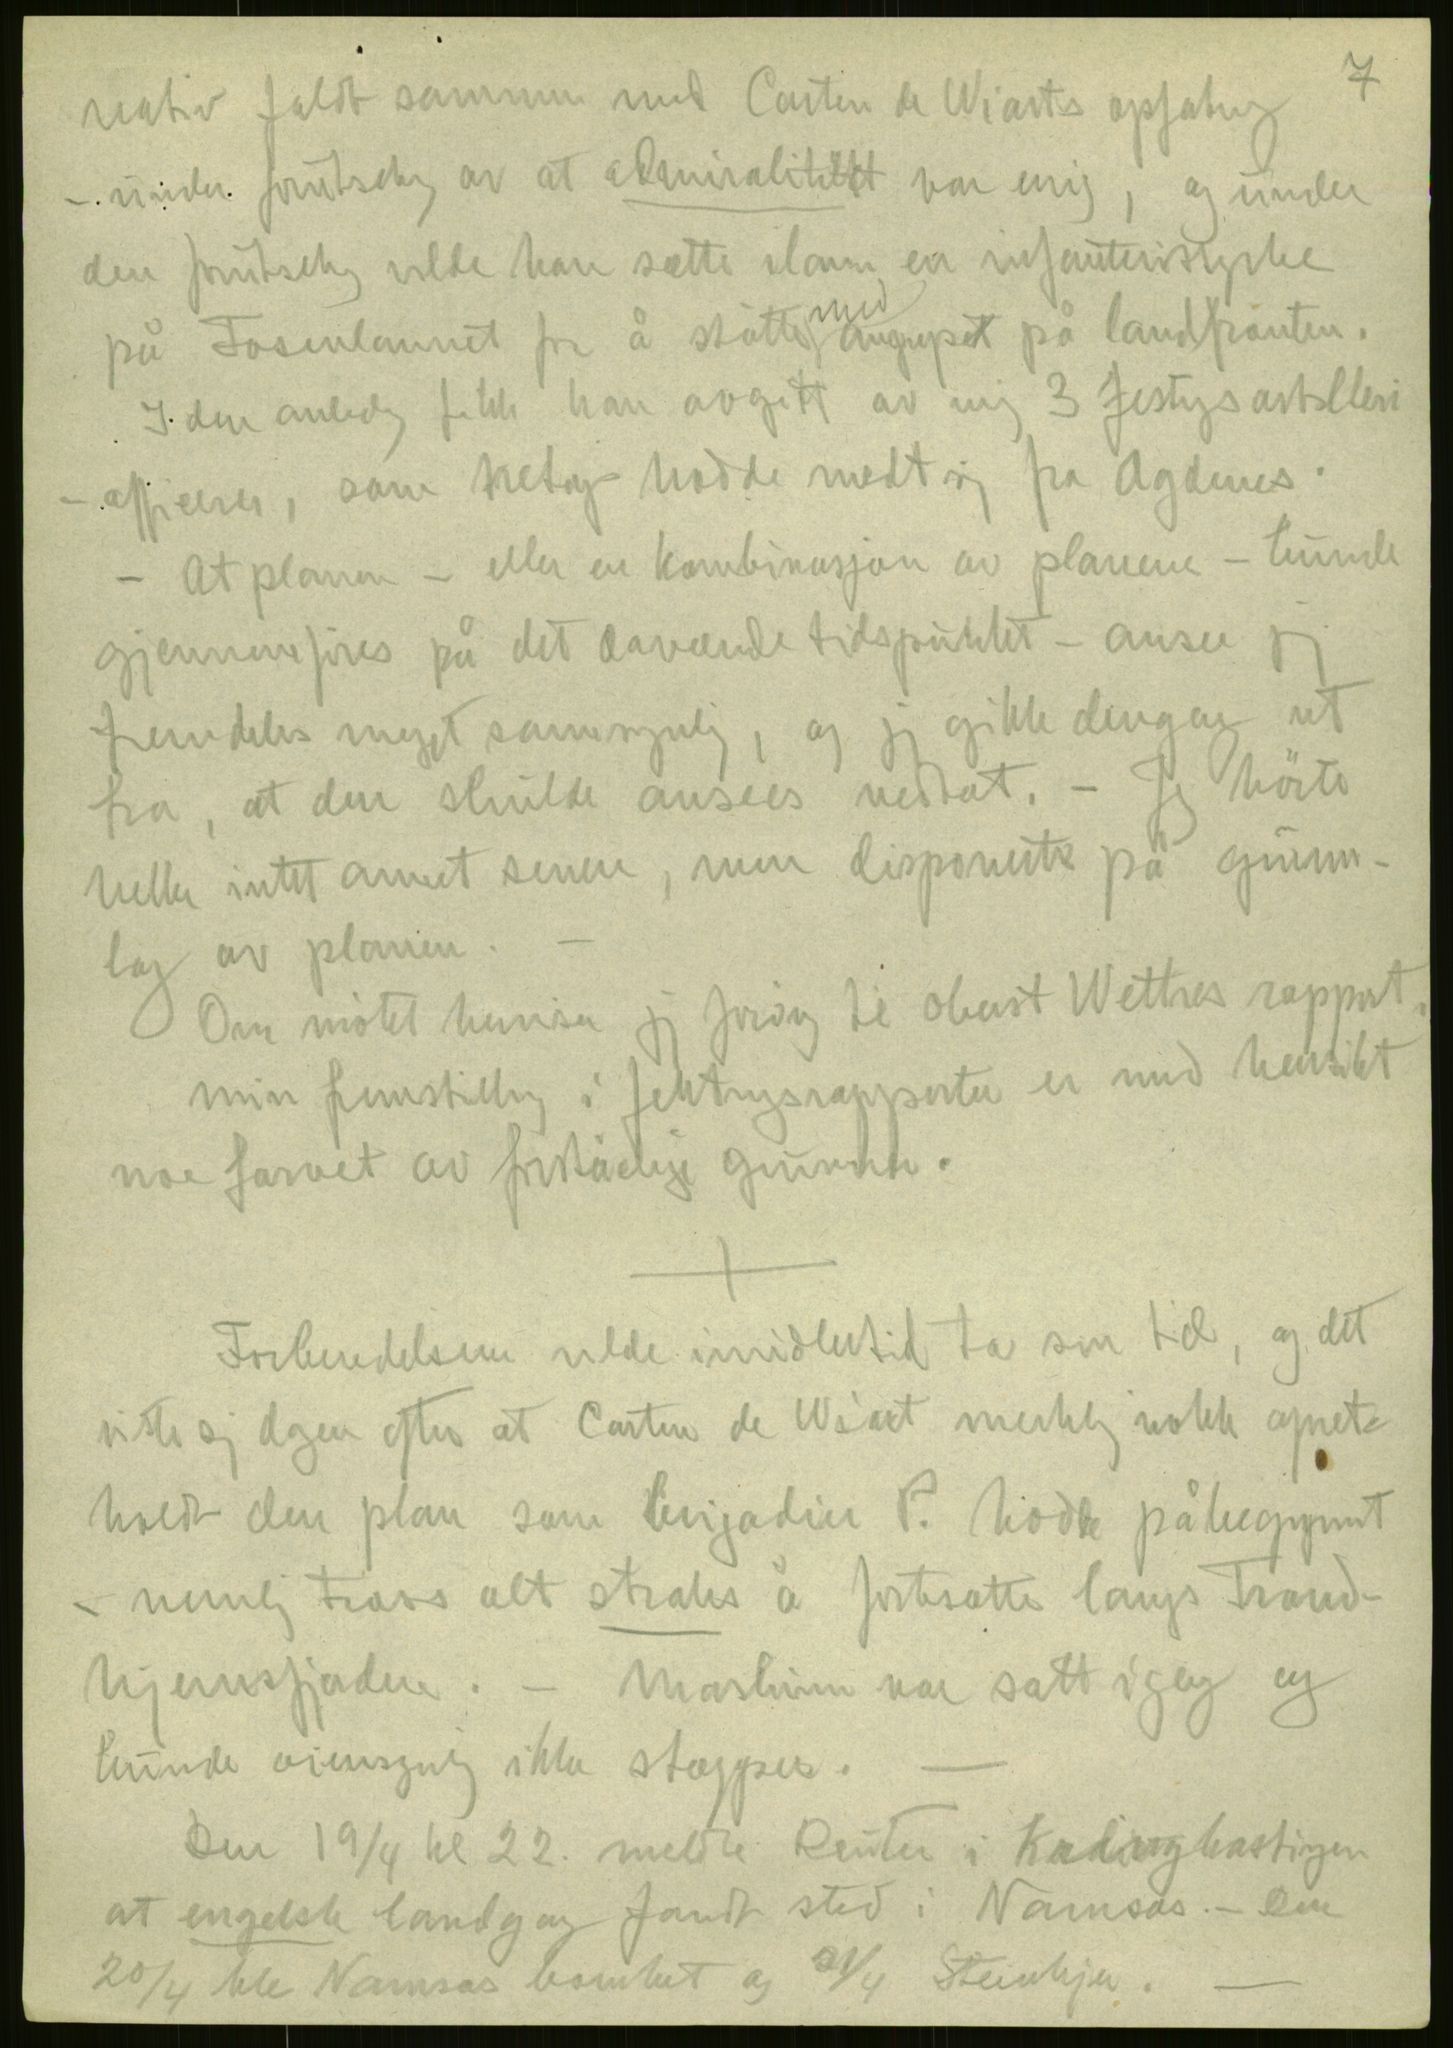 7
nativ faldt sammen med Carton de Wiarts opfatng
- under forutsetng av at admiralitetet var enig, og under
den forutsetng vilde han sætte iland en infanteristyrke
på Fosenlannet for å støtte med angrepet på landfronten.
I den anledng fikk han avgitt av mig 3 festngsartilleri
- officerer, som Holtermann hadde medt sig fra Agdenes.
- At planen - eller en kombinasjon av planene - kunde
gjennemføres på det daværende tidspunktet - anser jeg
fremdeles meget sannsynlig, og jeg gikk dengang ut
fra, at den skulde ansees vedtat. - Jeg hörte
heller intet annet senere, men disponerte på grunn-
lag av planen. -
Om møtet henviser jeg forövrig til oberst Wettres rapport.
min fremstillng i fektngsrapporten er med hensikt
noe farvet av forståelige grunner.
Forberedelsene vilde imidlertid ta sin tid, og det
viste sig dagen efter at Carton de Wiart merkelig nokk opret-
holdt den plan som brigadier P. hadde påbegynnt
- nemlig tross alt straks å fortsatte langs Trond-
hjemsfjorden. - Maskinen var satt igang og
kunde øiensynlig ikke stoppes. -
Den 19/4 kl 22. meldte Reuter i Kndringkastingen
at engelsk landgang fandt sted i Namsos. - Den
20/4 ble Namsos bombet og 21/4 Steinkjer. -